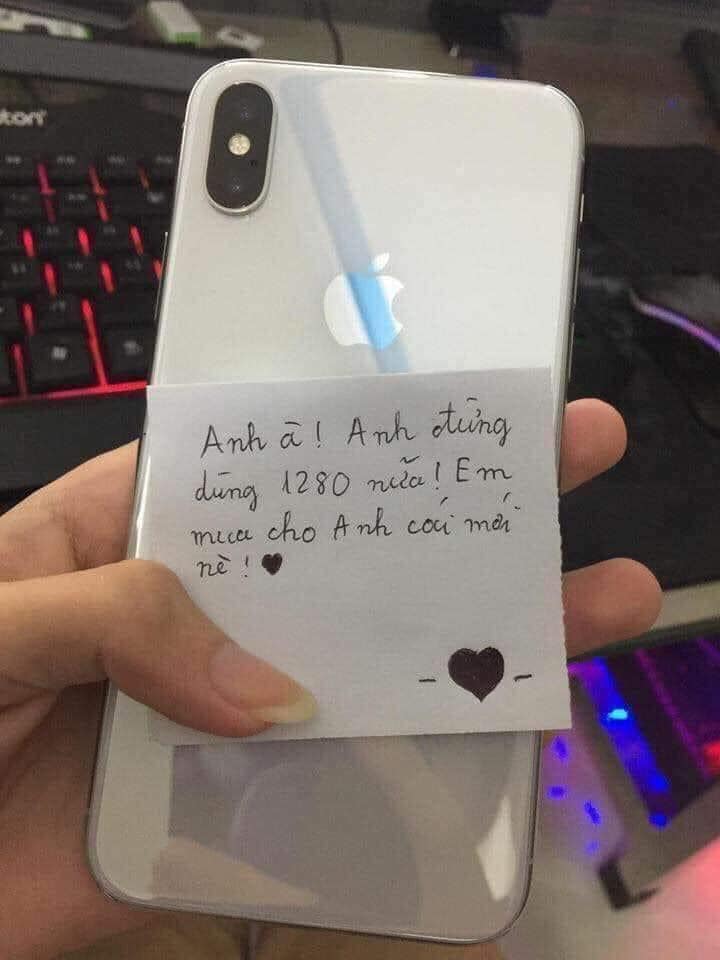 ston
Anh à! Anh đừng
dùng 1280 nữa! Em
mua cho Anh cái mới
nè! ♥
- ♥ -